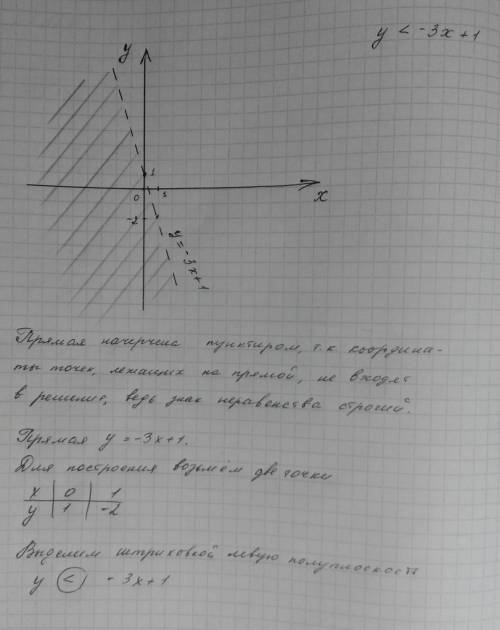 y < -3x+1
y
1
0
1
x
-2
y = -3x+1
Прямая начерчена пунктиром, т.к. координа-
ты точек, лежащих на прямой, не входят
в решение, ведь знак неравенства строгий.
Прямая y = -3x+1.
Для построения возьмём две точки
x 0 1
y 1 -2
Выделим штриховкой левую полуплоскость
y < -3x+1